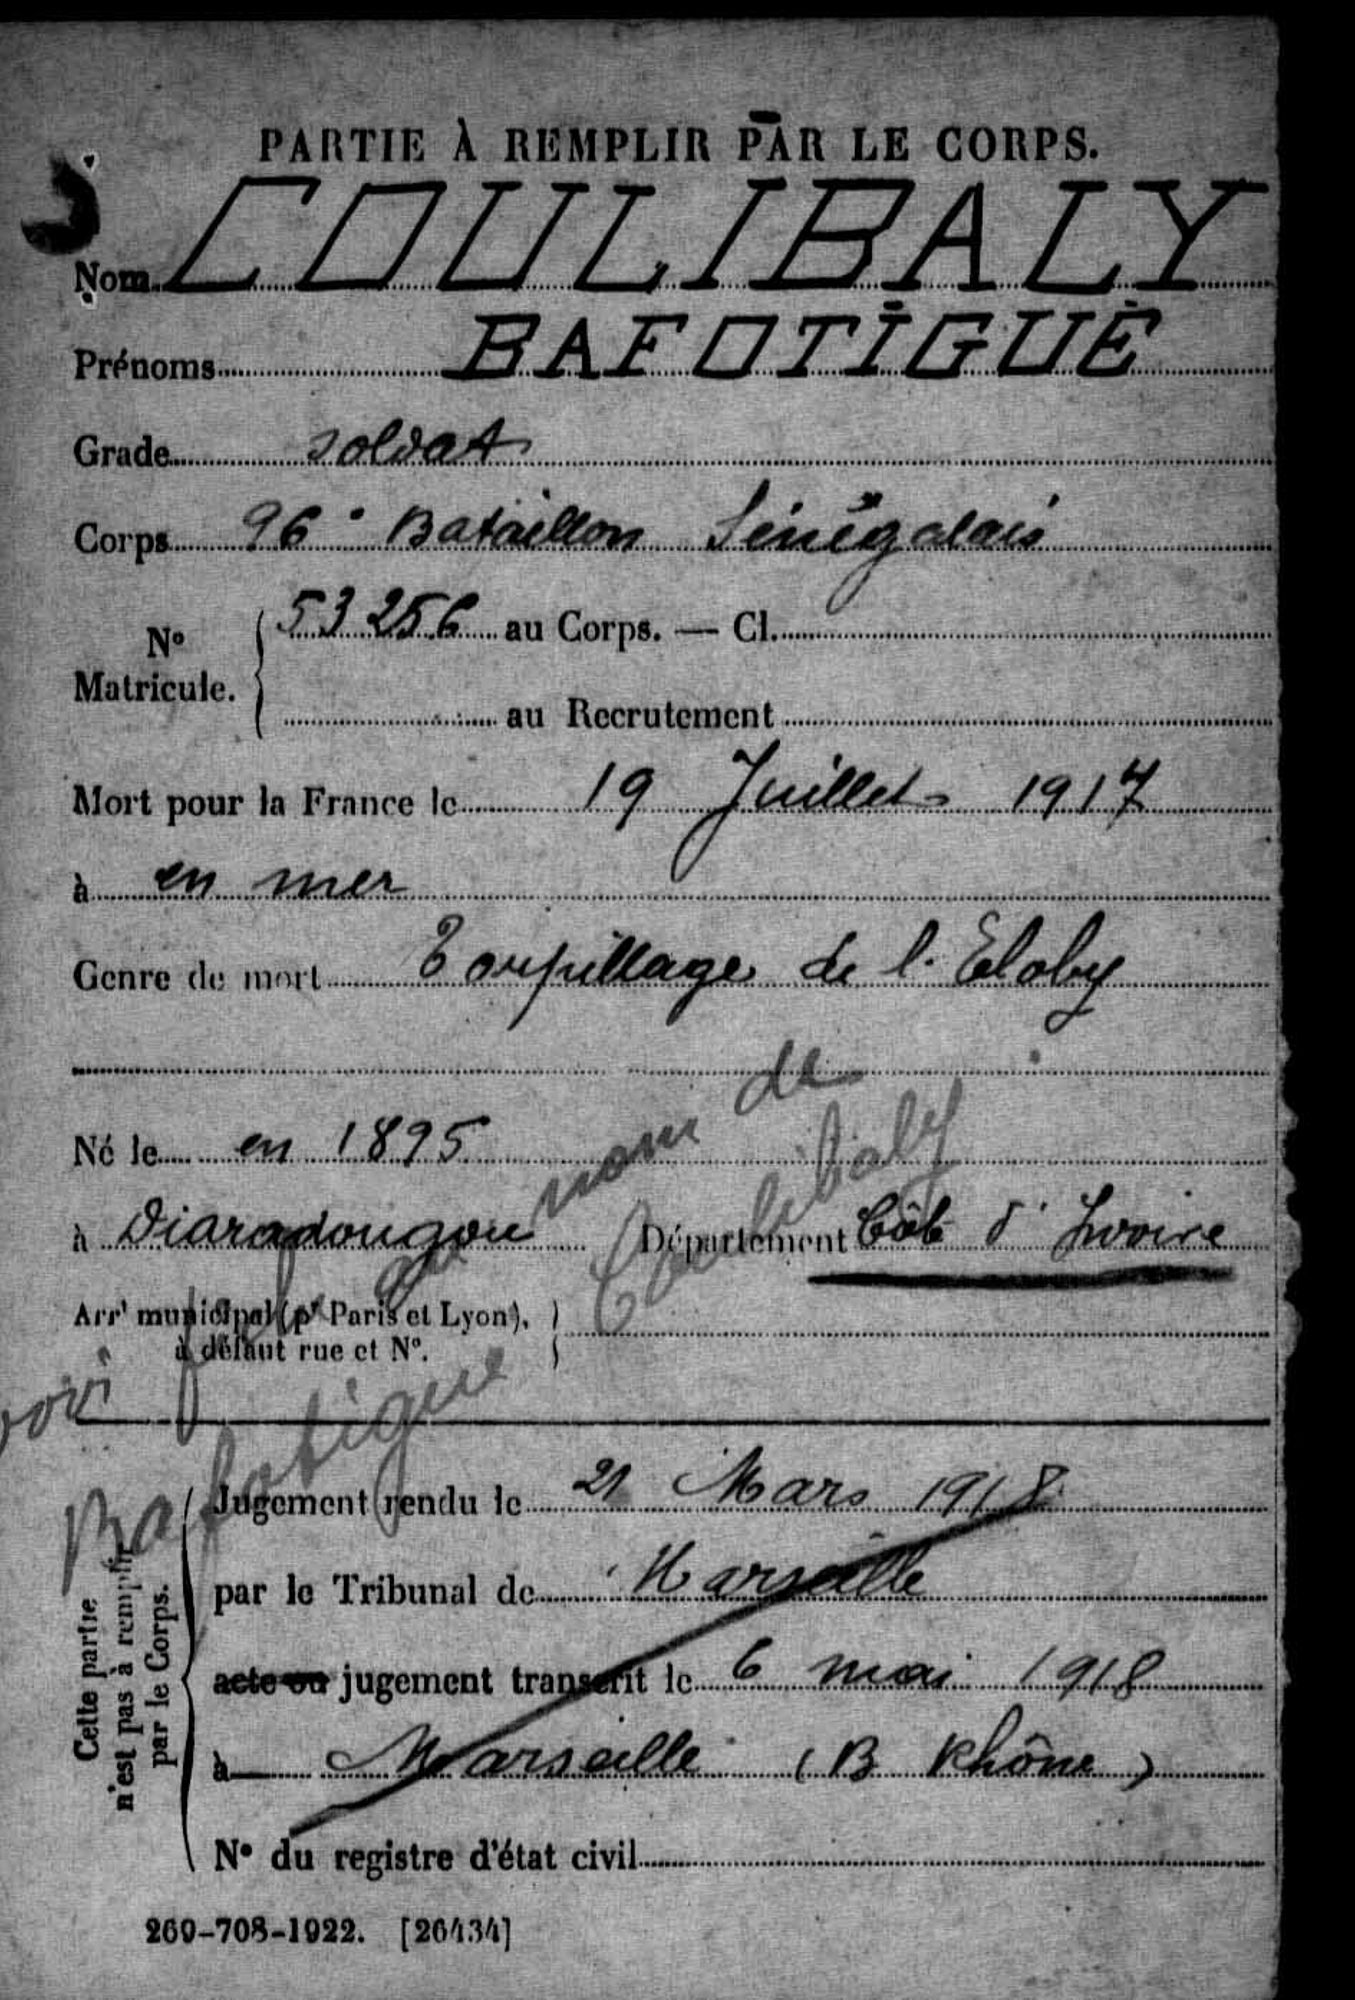 PARTIE À REMPLIR PAR LE CORPS.
Nom. COULIBALY
Prénoms BAFOTIGUÉ
Grade soldat
Corps 96e Bataillon Sénégalais
N° Matricule. 53 256 au Corps. — Cl.
au Recrutement
Mort pour la France le 19 Juillet 1917
à en mer
Genre de mort Torpillage de l'Eloby
Né le en 1895
à Diaradougou Département Côte d'Ivoire
Arrt municipal (pr Paris et Lyon), à défaut rue et N°.
voir au nom de Coulibaly
Bafotigue
Jugement rendu le 21 Mars 1918
par le Tribunal de Marseille
acte ou jugement transcrit le 6 mai 1918
à Marseille (B Rhône)
N° du registre d'état civil
Cette partie n'est pas à remplir par le Corps.
269-708-1922. [26434]